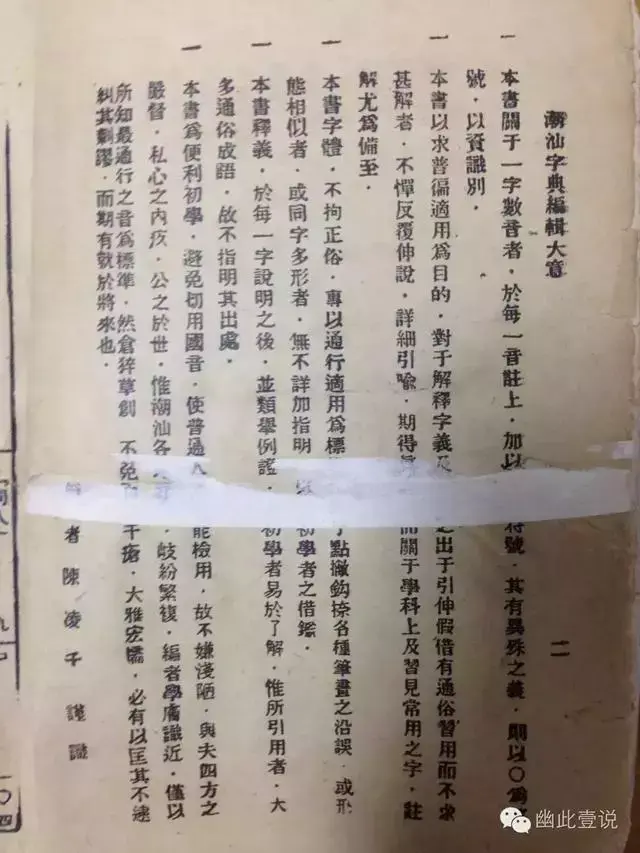 潮汕字典編輯大意
一 本書關于一字數音者，於每一音註上，加以 符號，其有異殊之義，則以〇爲
號，以資識別．
一 本書以求普徧適用爲目的，對于解釋字義及 之出于引伸假借有通俗習用而不求
甚解者，不憚反覆伸說，詳細引喩，期得 關于學科上及習見常用之字，註
解尤爲備至．
一 本書字體，不拘正俗，專以通行適用爲標 點撇鈎捺各種筆畫之沿誤，或形
態相似者，或同字多形者，無不詳加指明 初學者之借鑑．
一 本書釋義，於每一字說明之後，並類舉例證， 初學者易於了解，惟所引用者，大
多通俗成語，故不指明其出處．
一 本書爲便利初學，避免切用國音，使普通人 能檢用，故不嫌淺陋，與夫四方之
嚴督，私心之內疚，公之於世，惟潮汕各 ，歧紛繁複，編者學膚識近，僅以
所知最通行之音爲標準，然倉猝草創 不免 千瘡，大雅宏 ，必有以匡其不逮
糾其剌謬，而期有就於將來也．
者 陳凌千 謹識
二
一〇四
幽此壹说